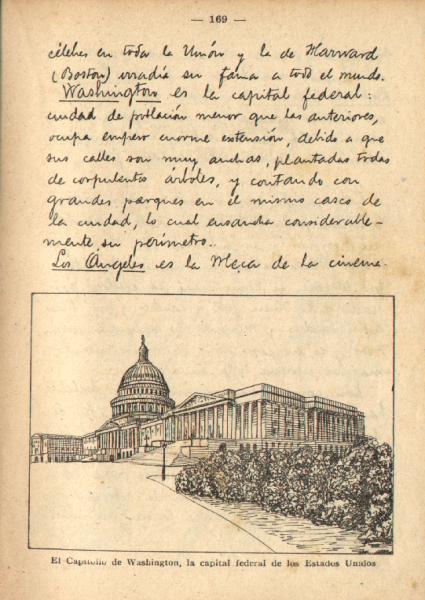 — 169 —
célebes en toda la Unión y la de Harward
(Boston) irradia su fama a todo el mundo.
Washington es la capital federal:
ciudad de población menor que las anteriores,
ocupa empero enorme extensión, debido a que
sus calles son muy anchas, plantadas todas
de corpulentos árboles, y contando con
grandes parques en el mismo casco de
la ciudad, lo cual ensancha considerable-
mente su perímetro.
Los Angeles es la Meca de la cinema-
El Capitolio de Washington, la capital federal de los Estados Unidos